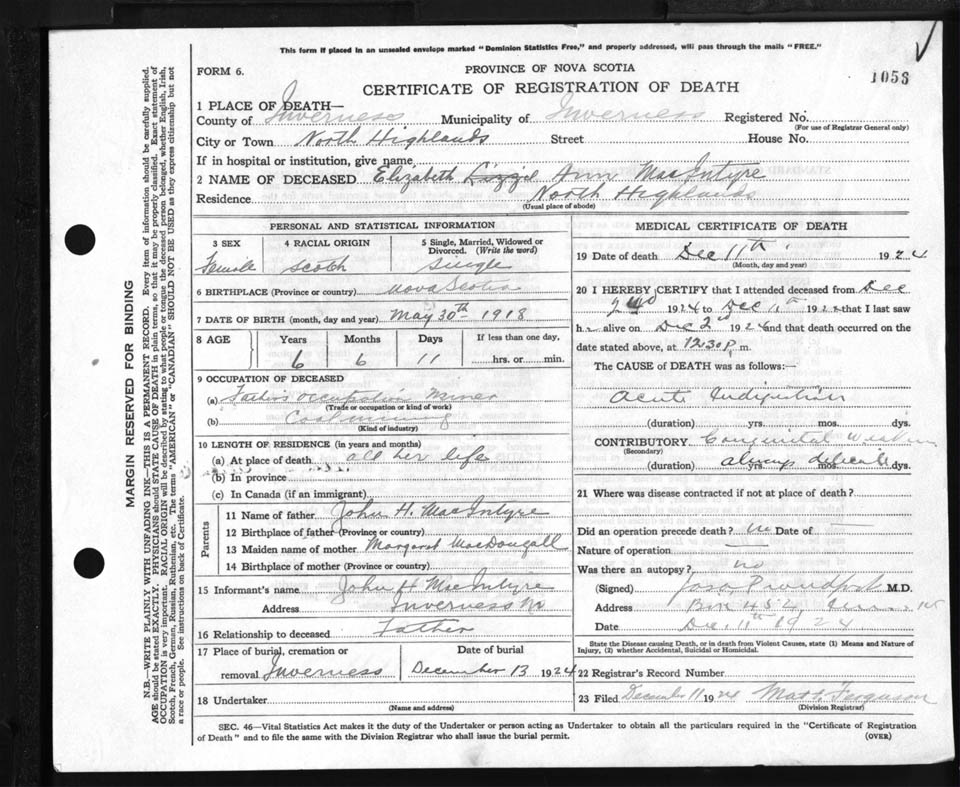 This form if placed in an unsealed envelope marked "Dominion Statistics Free," and properly addressed, will pass through the mails "FREE."
FORM 6.
PROVINCE OF NOVA SCOTIA
1053
CERTIFICATE OF REGISTRATION OF DEATH
1 PLACE OF DEATH—
County of Inverness Municipality of Inverness Registered No.
(For use of Registrar General only)
City or Town North Highlands Street House No.
If in hospital or institution, give name
2 NAME OF DECEASED Elizabeth Lizzie Ann MacIntyre
Residence North Highlands
(Usual place of abode)
PERSONAL AND STATISTICAL INFORMATION
3 SEX 4 RACIAL ORIGIN 5 Single, Married, Widowed or Divorced. (Write the word)
Female Scotch Single
6 BIRTHPLACE (Province or country) Nova Scotia
7 DATE OF BIRTH (month, day and year) May 30th 1918
8 AGE Years Months Days If less than one day,
6 6 11 hrs. or min.
9 OCCUPATION OF DECEASED
(a) Father's occupation Miner
(Trade or occupation or kind of work)
(b) Coal mining
(Kind of industry)
10 LENGTH OF RESIDENCE (in years and months)
(a) At place of death all her life
(b) In province
(c) In Canada (if an immigrant)
Parents
11 Name of father John H. MacIntyre
12 Birthplace of father (Province or country)
13 Maiden name of mother Margaret MacDougall
14 Birthplace of mother (Province or country)
15 Informant's name John H MacIntyre
Address Inverness
16 Relationship to deceased Father
17 Place of burial, cremation or removal Inverness
Date of burial
December 13 1924
18 Undertaker
(Name and address)
MEDICAL CERTIFICATE OF DEATH
19 Date of death Dec 11th 1924
(Month, day and year)
20 I HEREBY CERTIFY that I attended deceased from Dec
2nd 1924 to Dec 11th 192 that I last saw
h alive on Dec 2nd 1924 and that death occurred on the
date stated above, at 12.30 p. m.
The CAUSE of DEATH was as follows:—
Acute Indigestion
(duration) yrs. mos. dys.
CONTRIBUTORY Congenital
(Secondary)
(duration) always delicate yrs. mos. dys.
21 Where was disease contracted if not at place of death?
Did an operation precede death? no Date of —
Nature of operation —
Was there an autopsy? no
(Signed) Proudfoot M.D.
Address Box 454,
Date Dec. 11th 1924
State the Disease causing Death, or in death from Violent Causes, state (1) Means and Nature of Injury, (2) whether Accidental, Suicidal or Homicidal.
22 Registrar's Record Number
23 Filed December 11 1924 Matt. Ferguson
(Division Registrar)
SEC. 46—Vital Statistics Act makes it the duty of the Undertaker or person acting as Undertaker to obtain all the particulars required in the "Certificate of Registration
of Death" and to file the same with the Division Registrar who shall issue the burial permit.
(OVER)
MARGIN RESERVED FOR BINDING
N.B.—WRITE PLAINLY WITH UNFADING INK—THIS IS A PERMANENT RECORD. Every item of information should be carefully supplied.
AGE should be stated EXACTLY. PHYSICIANS should STATE CAUSE OF DEATH in plain terms, so that it may be properly classified. Exact statement of
OCCUPATION is very important. RACIAL ORIGIN will be described by stating to what people or tongue the deceased person belonged, whether English, Irish,
Scotch, French, German, Russian, Ruthenian, etc. The terms "AMERICAN" or "CANADIAN" SHOULD NOT BE USED as they express citizenship but not
a race or people. See instructions on back of Certificate.